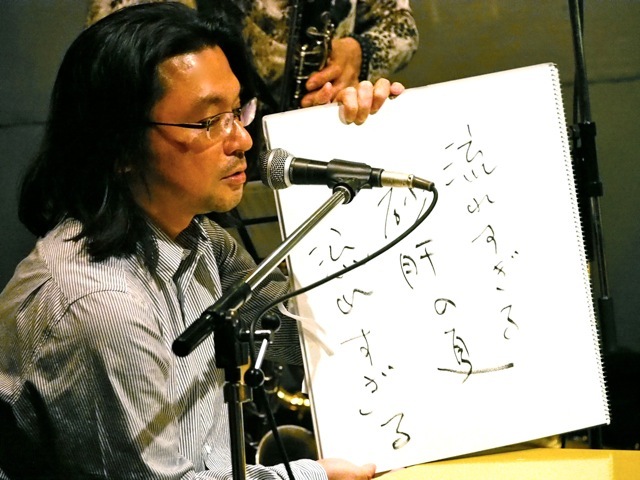 流れすぎる
砂肝の
流れすぎる